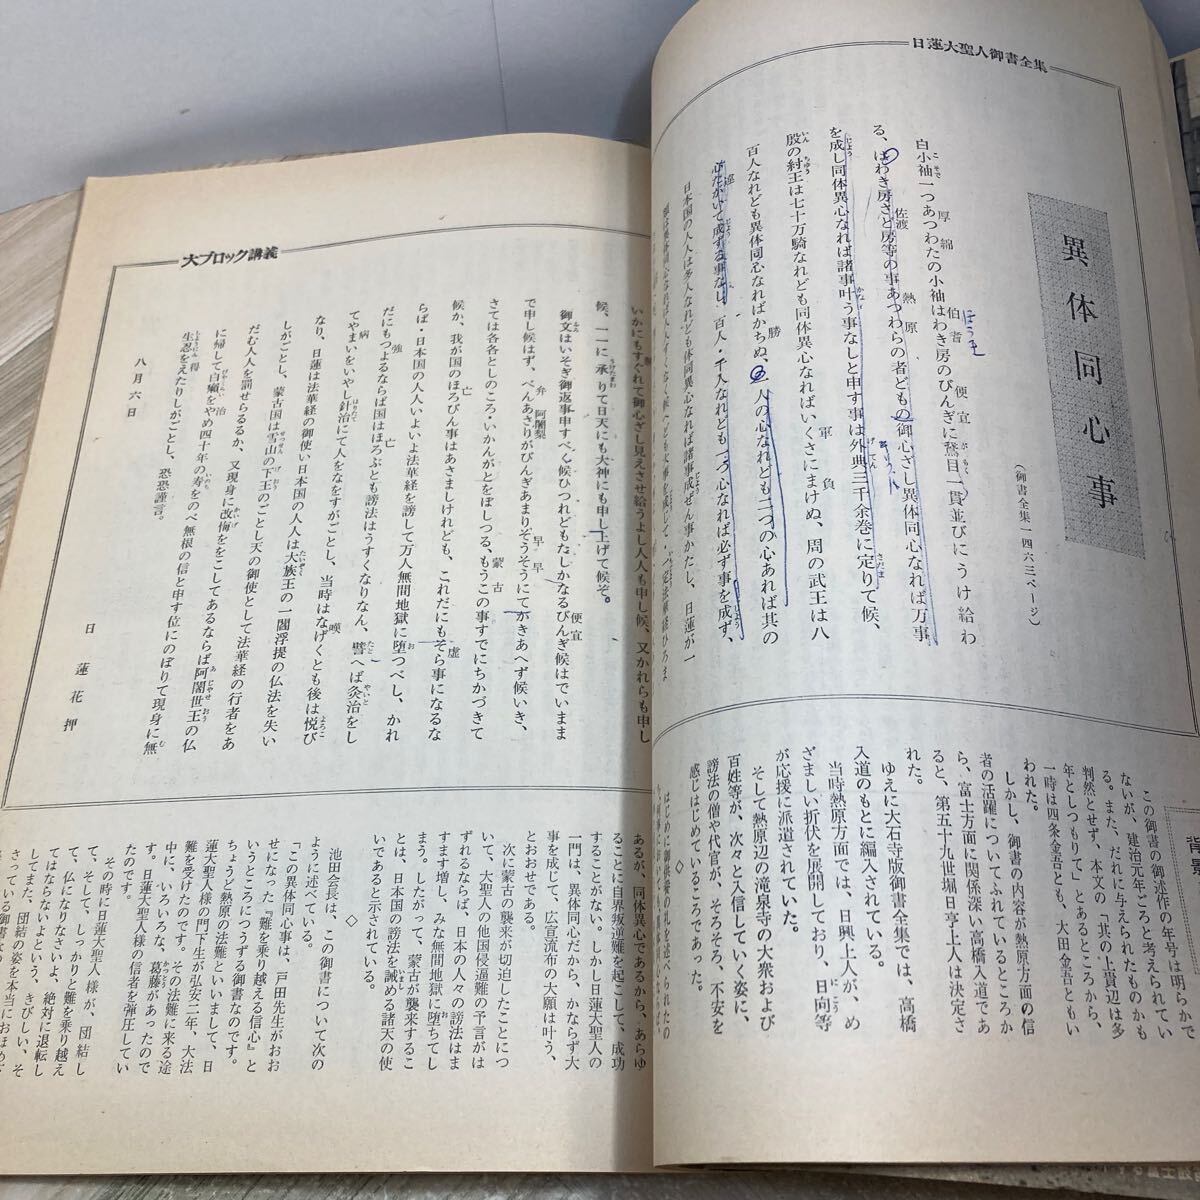 日蓮大聖人御書全集
異体同心事
(御書全集一四六三ページ)
白小袖一つあつわたの小袖はわき房のびんぎに鵞目一貫並びにうけ給わ
る、はわき房さど房等の事あつわらの者どもの御心ざし異体同心なれば万事
を成し同体異心なれば諸事叶う事なしと申す事は外典三千余巻に定りて候、
殷の紂王は七十万騎なれども同体異心なればいくさにまけぬ、周の武王は八
百人なれども異体同心なればかちぬ、一人の心なれども二つの心あれば其の
心たがいて成ずる事なし、百人・千人なれども一つ心なれば必ず事を成ず、
日本国の人人は多人なれども体同異心なれば諸事成ぜん事かたし、日蓮が一
背景
この御書の御述作の年号は明らかで
ないが、建治元年ごろと考えられてい
る。また、だれに与えられたものかも
判然とせず、本文の「其の上貴辺は多
年としつもりて」とあるところから、
一時は四条金吾とも、大田金吾ともい
われた。
しかし、御書の内容が熱原方面の信
者の活躍についてふれているところか
ら、富士方面に関係深い高橋入道であ
ると、第五十九世堀日亨上人は決定さ
れた。
ゆえに大石寺版御書全集では、高橋
入道のもとに編入されている。
当時熱原方面では、日興上人が、め
ざましい折伏を展開しており、日向等
が応援に派遣されていた。
そして熱原辺の滝泉寺の大衆および
百姓等が、次々と入信していく姿に、
謗法の僧や代官が、そろそろ、不安を
感じはじめているころであった。
◇
はじめに御供養の礼を述べられたの
大ブロック講義
いかにもすぐれて御心ざし見えさせ給うよし人人も申し候、又かれらも申し
候、一一に承りて日天にも大神にも申し上げて候ぞ。
御文はいそぎ御返事申すべく候ひつれどもたしかなるびんぎ候はでいまま
で申し候はず、べんあさりがびんぎあまりそうそうにてかきあへず候いき、
さては各各としのころ・いかんがとをぼしつる、もうこの事すでにちかづきて
候か、我が国のほろびん事はあさましけれども、これだにもそら事になるな
らば・日本国の人人いよいよ法華経を謗して万人無間地獄に堕つべし、かれ
だにもつよるならば国はほろぶとも謗法はうすくなりなん、譬へば灸治をし
てやまいをいやし針治にて人をなをすがごとし、当時はなげくとも後は悦び
なり、日蓮は法華経の御使い日本国の人人は大族王の一閻浮提の仏法を失い
しがごとし、蒙古国は雪山の下王のごとし天の御使として法華経の行者をあ
だむ人人を罰せらるるか、又現身に改悔ををこしてあるならば阿闍世王の仏
に帰して白癩をやめ四十年の寿をのべ無根の信と申す位にのぼりて現身に無
生忍をえたりしがごとし、恐恐謹言。
八月六日
日蓮花押
あるが、同体異心であるから、あらゆ
ることに自界叛逆難を起こして、成功
することがない。しかし日蓮大聖人の
一門は、異体同心だから、かならず大
事を成じて、広宣流布の大願は叶う、
とおおせである。
次に蒙古の襲来が切迫したことにつ
いて、大聖人の他国侵逼難の予言がは
ずれるならば、日本の人々の謗法はま
すます増し、みな無間地獄に堕ちてし
まう。したがって、蒙古が襲来するこ
とは、日本国の謗法を誡める諸天の使
いであると示されている。
◇
池田会長は、この御書について次の
ように述べている。
「この異体同心事は、戸田先生がおお
せになった『難を乗り越える信心』と
いうところにつうずる御書なのです。
ちょうど熱原の法難といいまして、日
蓮大聖人様の門下生が弘安二年、大法
難を受けたのです。その法難に来る途
中に、いろいろな、葛藤があったので
す。日蓮大聖人様の信者を弾圧してい
たのです。
その時に日蓮大聖人様が、団結し
て、そして、しっかりと難を乗り越え
て、仏になりなさいよ、絶対に退転し
てはならないよという、きびしい、そ
してまた、団結の姿を本当におほめだ